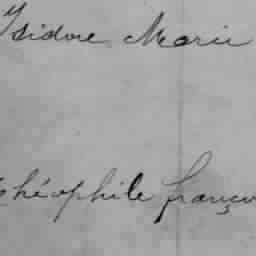 Isidore Marie
Théophile françoi